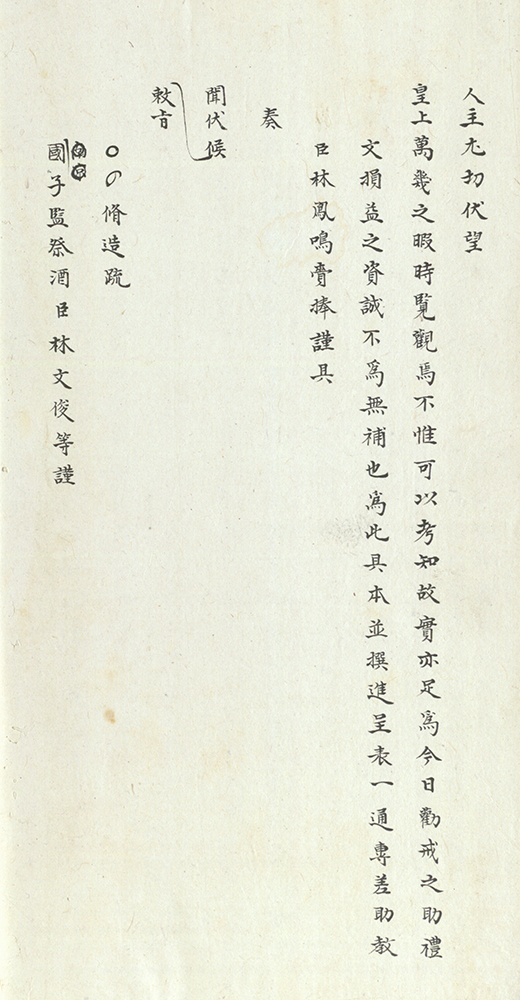 人主尤切伏望
皇上萬幾之暇時覽觀焉不惟可以考知故實亦足爲今日勸戒之助禮
文損益之資誠不爲無補也爲此具本並撰進呈表一通專差助教
臣林鳳鳴齎捧謹具
奏
聞伏候
敕旨
脩造疏
南京
國子監祭酒臣林文俊等謹